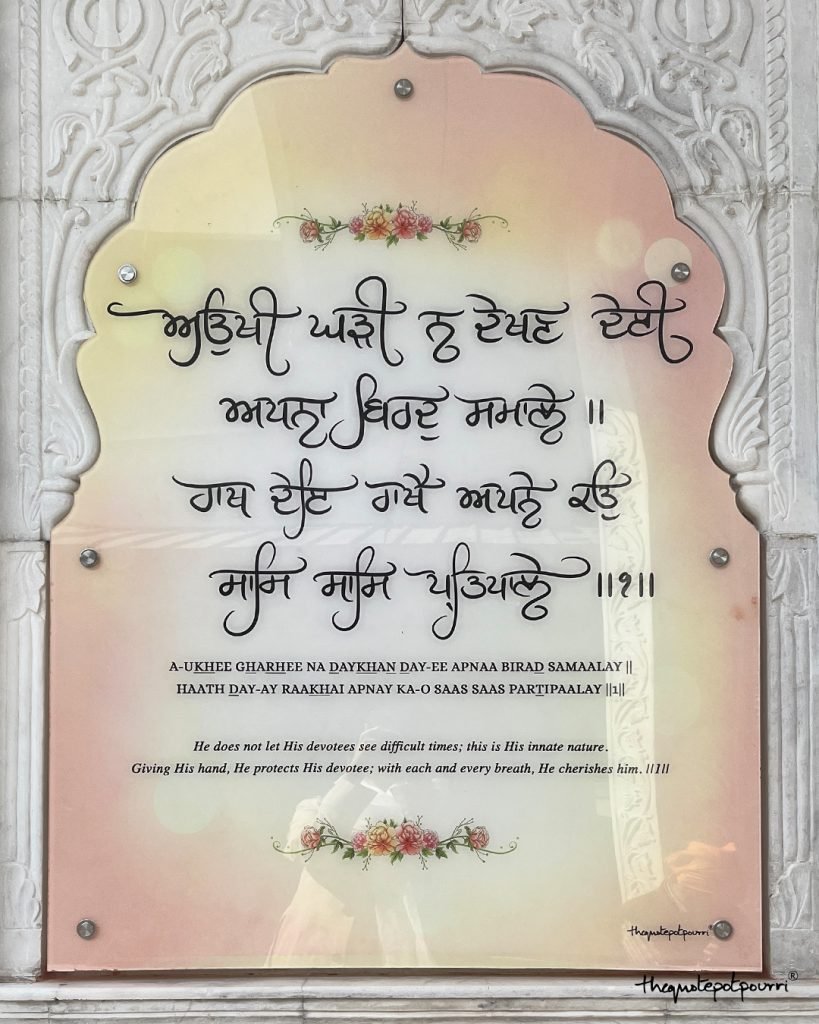 ਅਉਖੀ ਘੜੀ ਨ ਦੇਖਣ ਦੇਈ
ਅਪਨਾ ਬਿਰਦੁ ਸਮਾਲੇ ॥
ਹਾਥ ਦੇਇ ਰਾਖੈ ਅਪਨੇ ਕਉ
ਸਾਸਿ ਸਾਸਿ ਪ੍ਰਤਿਪਾਲੇ ॥੧॥
A-UKHEE GHARHEE NA DAYKHAN DAY-EE APNAA BIRAD SAMAALAY ||
HAATH DAY-AY RAAKHAI APNAY KA-O SAAS SAAS PARTIPAALAY ||1||
He does not let His devotees see difficult times; this is His innate nature.
Giving His hand, He protects His devotee; with each and every breath, He cherishes him. ||1||
thequotepotpourri®
thequotepotpourri®